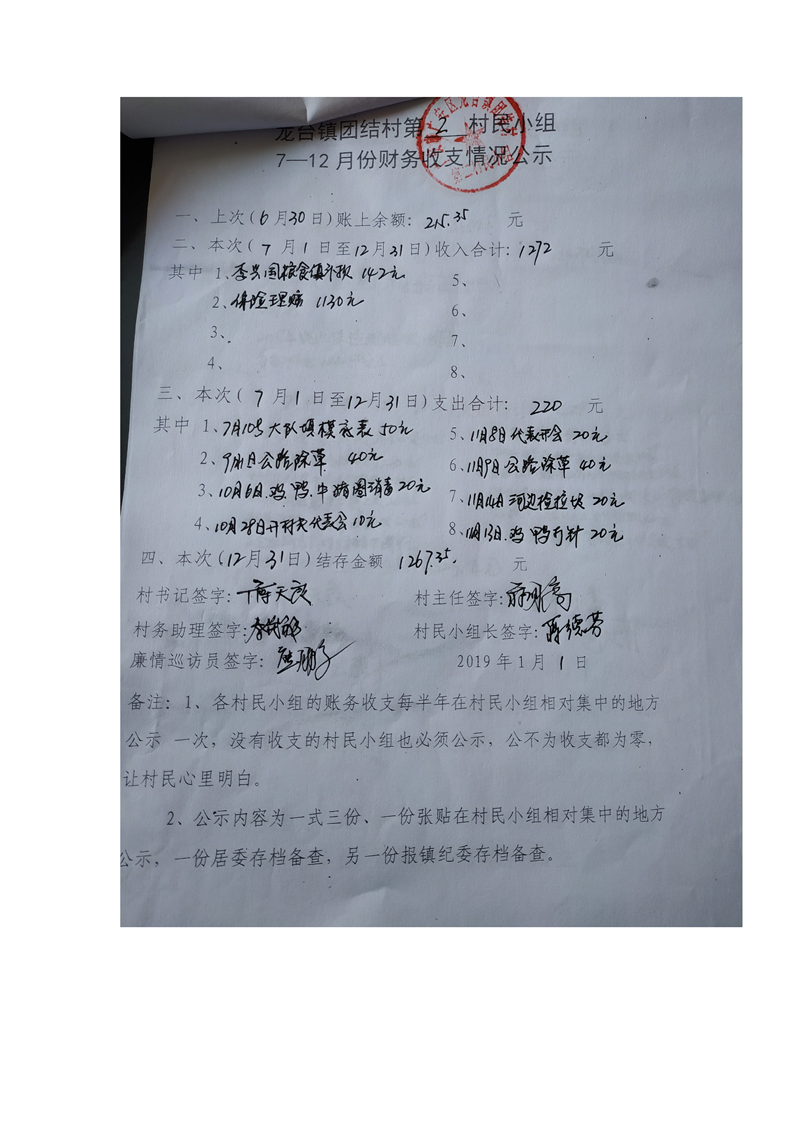 龙台镇团结村第 2 村民小组
7—12月份财务收支情况公示
一、上次(6月30日)账上余额: 215.35 元
二、本次(7月1日至12月31日)收入合计: 1272 元
其中 1、李兴国粮食镇补款 142元
5、
2、保险理赔 1130元
6、
3、
7、
4、
8、
三、本次(7月1日至12月31日)支出合计: 220 元
其中 1、7月10号大队填模底表 50元
5、11月8日代表开会 20元
2、9月1日公路除草 40元
6、11月9日公路除草 40元
3、10月6日.鸡.鸭.牛猪圈消毒20元
7、11月14日河边检垃圾 20元
4、10月28日开村夫代表会10元
8、11月13日.鸡鸭打针 20元
四、本次(12月31日)结存金额 1267.35. 元
村书记签字:
村主任签字:
村务助理签字:
村民小组长签字:
廉情巡访员签字:
2019年1月1日
备注: 1、各村民小组的账务收支每半年在村民小组相对集中的地方
公示 一次，没有收支的村民小组也必须公示，公不为收支都为零，
让村民心里明白。
2、公示内容为一式三份、一份张贴在村民小组相对集中的地方
公示，一份居委存档备查，另一份报镇纪委存档备查。